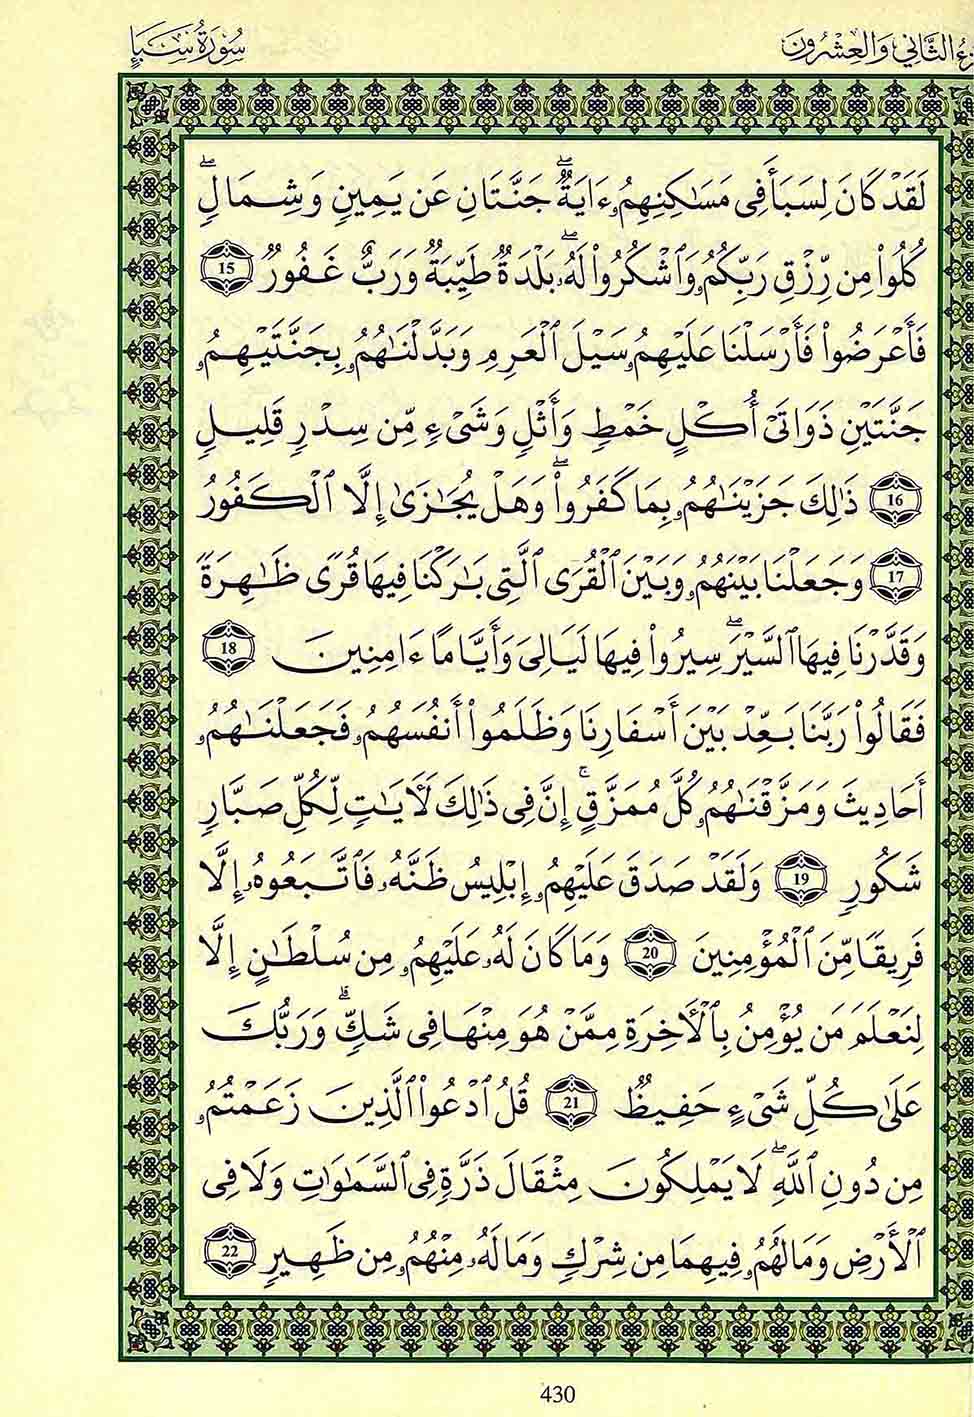 ـزء الثَّانِي وَالعِشْرُونَ
سُورَةُ سَبَإٍ
لَقَدْ كَانَ لِسَبَأَ فِى مَسَاكِنِهِمُۥ ءَايَةٌ ۖ جَنَّتَانِ عَن يَمِينٍ وَشِمَالٍ ۖ
كُلُوا۟ مِن رِّزْقِ رَبِّكُمُۥ وَٱشْكُرُوا۟ لَهُۥ ۖ بَلْدَةٌ طَيِّبَةٌ وَرَبٌّ غَفُورٌ 15
فَأَعْرَضُوا۟ فَأَرْسَلْنَا عَلَيْهِمُۥ سَيْلَ ٱلْعَرِمِ وَبَدَّلْنَٰهُمُۥ بِجَنَّتَيْهِمُۥ
جَنَّتَيْنِ ذَوَاتَىْ أُكْلٍ خَمْطٍ وَأَثْلٍ وَشَىْءٍ مِّن سِدْرٍ قَلِيلٍ
16 ذَٰلِكَ جَزَيْنَٰهُمُۥ بِمَا كَفَرُوا۟ ۖ وَهَلْ يُجَٰزَىٰ إِلَّا ٱلْكَفُورُ
17 وَجَعَلْنَا بَيْنَهُمُۥ وَبَيْنَ ٱلْقُرَى ٱلَّتِى بَٰرَكْنَا فِيهَا قُرًى ظَٰهِرَةً
وَقَدَّرْنَا فِيهَا ٱلسَّيْرَ ۖ سِيرُوا۟ فِيهَا لَيَالِىَ وَأَيَّامًا ءَامِنِينَ 18
فَقَالُوا۟ رَبَّنَا بَعِّدْ بَيْنَ أَسْفَارِنَا وَظَلَمُوا۟ أَنفُسَهُمُۥ فَجَعَلْنَٰهُمُۥ
أَحَادِيثَ وَمَزَّقْنَٰهُمُۥ كُلَّ مُمَزَّقٍ ۚ إِنَّ فِى ذَٰلِكَ لَأٓيَٰتٍ لِّكُلِّ صَبَّارٍ
شَكُورٍ 19 وَلَقَدْ صَدَقَ عَلَيْهِمُۥ إِبْلِيسُ ظَنَّهُۥ فَٱتَّبَعُوهُۥ إِلَّا
فَرِيقًا مِّنَ ٱلْمُؤْمِنِينَ 20 وَمَا كَانَ لَهُۥ عَلَيْهِمُۥ مِن سُلْطَٰنٍ إِلَّا
لِنَعْلَمَ مَن يُؤْمِنُ بِٱلْأَخِرَةِ مِمَّنْ هُوَ مِنْهَا فِى شَكٍّ ۗ وَرَبُّكَ
عَلَىٰ كُلِّ شَىْءٍ حَفِيظٌ 21 قُلُ ٱدْعُوا۟ ٱلَّذِينَ زَعَمْتُمُۥ
مِن دُونِ ٱللَّهِ ۖ لَا يَمْلِكُونَ مِثْقَالَ ذَرَّةٍ فِى ٱلسَّمَٰوَٰتِ وَلَا فِى
ٱلْأَرْضِ وَمَا لَهُمُۥ فِيهِمَا مِن شِرْكٍ وَمَا لَهُۥ مِنْهُمُۥ مِن ظَهِيرٍ 22
430